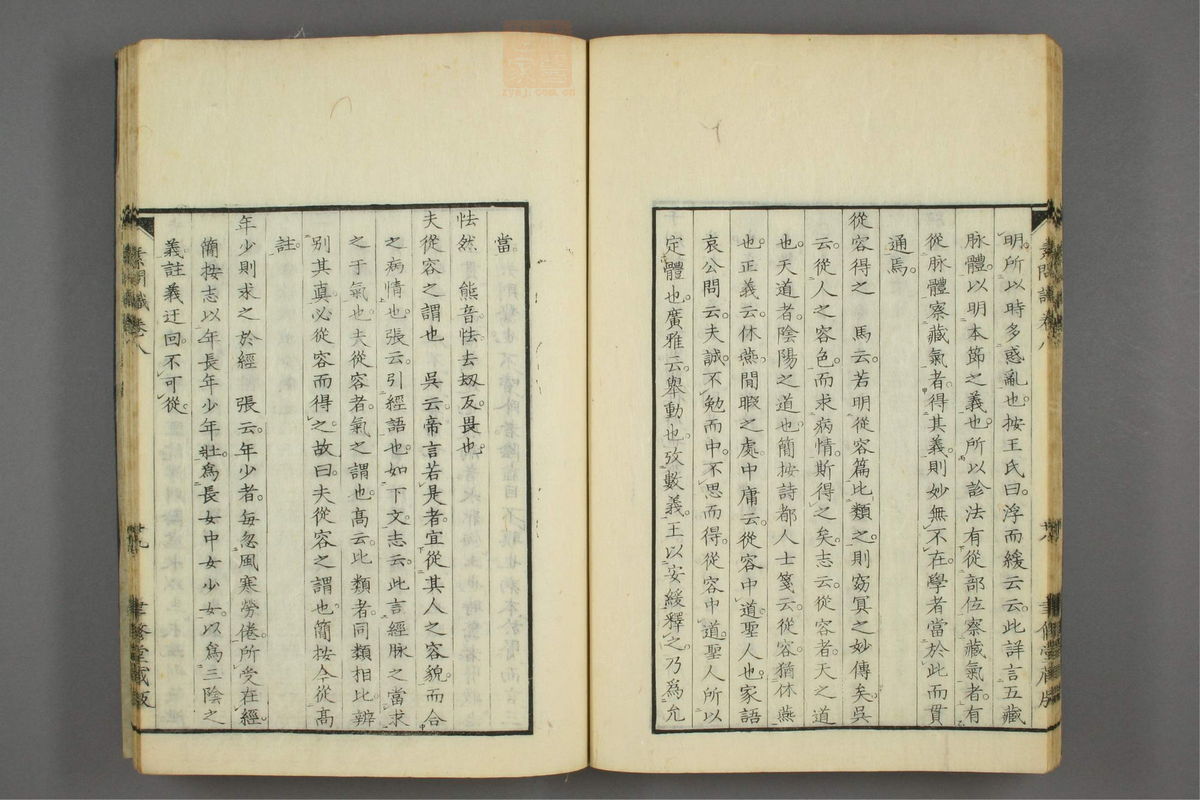 明。所以時多惑亂也。按王氏曰。浮而緩云云。此詳言五藏
脉體。以明本節之義也。所以診法有從部位察藏氣者。有
從脉體察藏氣者。得其義則妙無不在。學者當於此而貫
通焉。
從容得之　馬云。若明從容篇比類之。則窈冥之妙傳矣。吳
云。從人之容色。而求病情。斯得之矣。志云。從容者。天之道
也。天道者。陰陽之道也。簡按詩都人士箋云。從容。猶休燕
也。正義云。休燕。閒暇之處。中庸云。從容中道。聖人也。家語
哀公問云。夫誠不勉而中。不思而得。從容中道。聖人所以
定體也。廣雅云。舉動也。攷數義。王以安緩釋之。乃爲允
當。
怯然　熊音。怯去刼反。畏也。
夫從容之謂也　吳云。帝言若是者。宜從其人之容貌。而合
之病情也。張云。引經語也。如下文。志云。此言經脉之當求
之于氣也。夫從容者。氣之謂也。髙云。比類者。同類相比。辨
别其真。必從容而得之。故曰夫從容之謂也。簡按今從髙
註。
年少則求之於經　張云。年少者。每忽風寒勞倦。所受在經。
簡按志以年長年少年壯。爲長女中女少女。以爲三陰之
義。註義迂回。不可從。
素問識卷八
廿九
聿修堂藏版